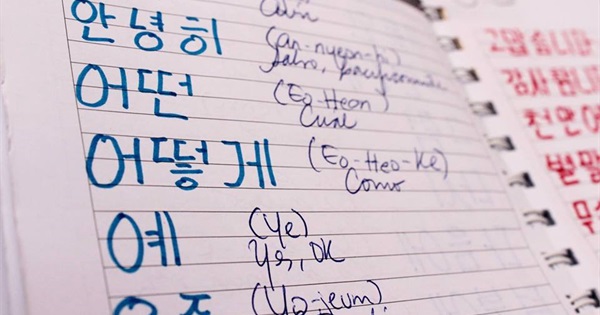 안녕히 (an-nyeon-hi)
어떤 (Eo-tteon)
Cual
어떻게 (Eo-tteo-ke)
Como
예 (Ye)
Yes, OK
요즘 (Yo-jeum)
고맙습니다
감사합니
천만에
별말